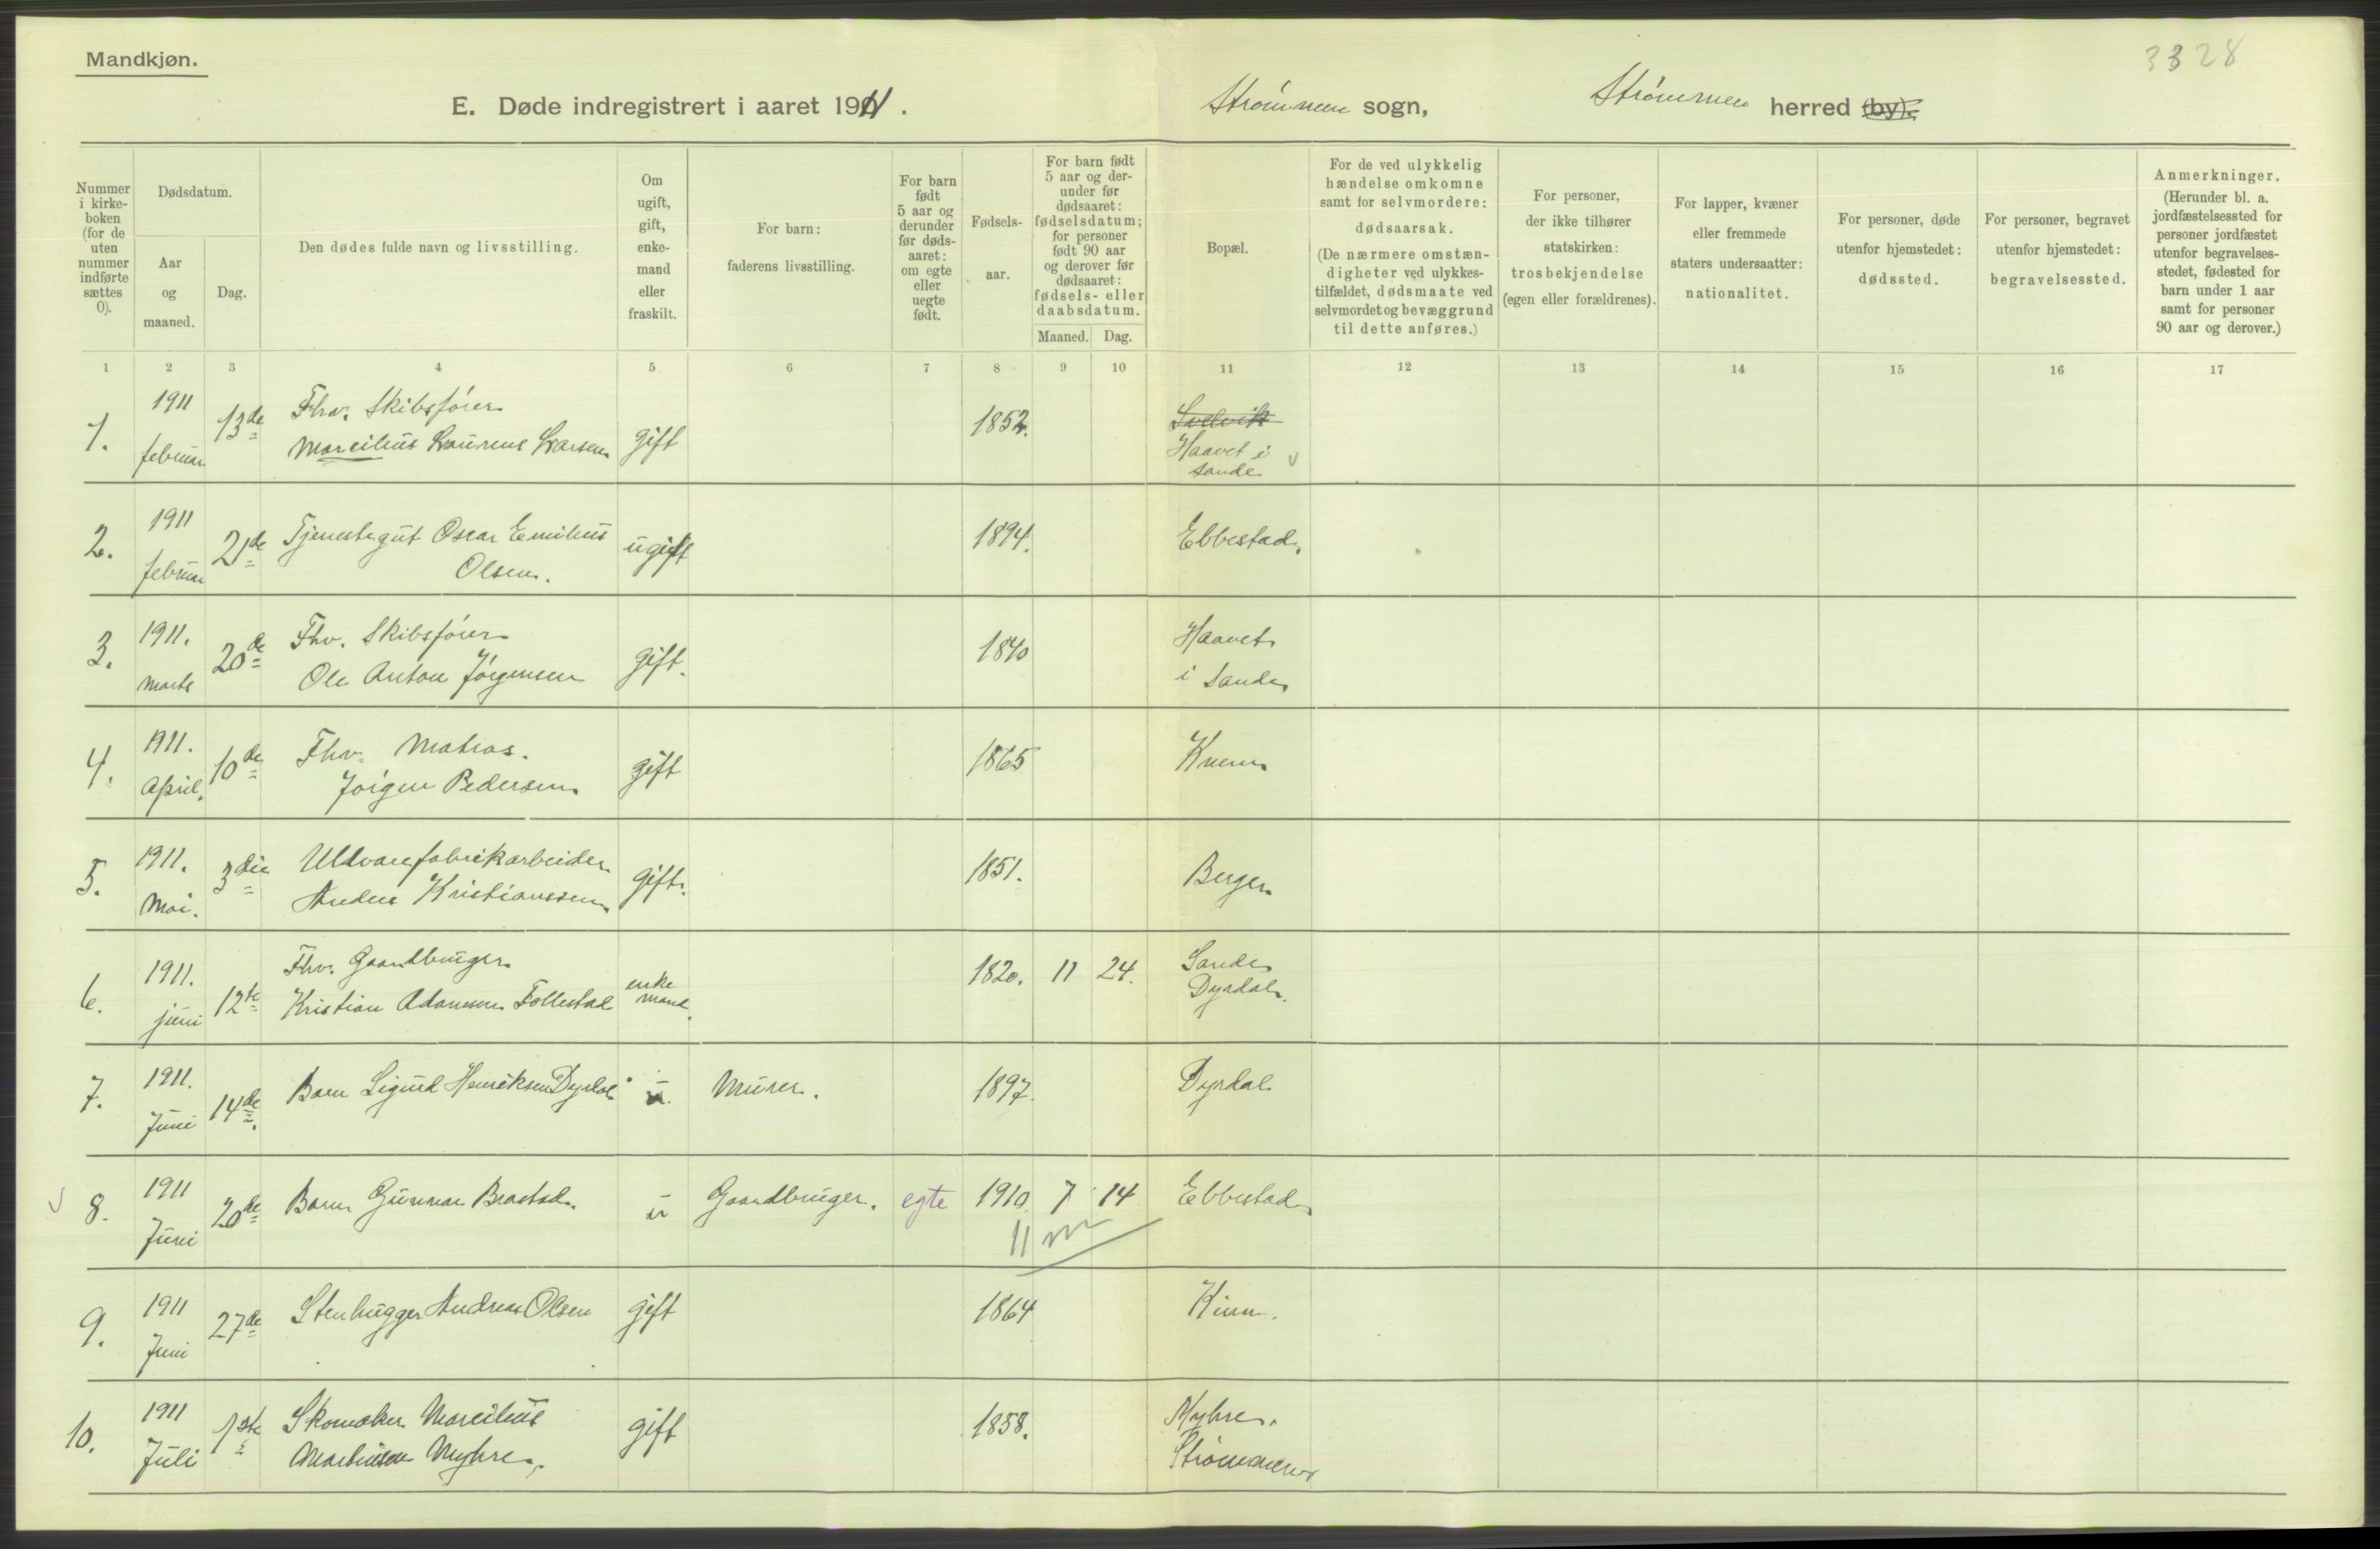 Mandkjøn.
3328
E. Døde indregistrert i aaret 1911.
Strømmen sogn, Strømmen herred (by).
Nummer i kirke-boken (for de uten nummer indførte sættes 0).
Dødsdatum.
Aar og maaned.
Dag.
Den dødes fulde navn og livsstilling.
Om ugift, gift, enke-mand eller fraskilt.
For barn: faderens livsstilling.
For barn født 5 aar og derunder før døds-aaret: om egte eller uegte født.
Fødsels-aar.
For barn født 5 aar og der-under før dødsaaret: fødselsdatum; for personer født 90 aar og derover før dødsaaret: fødsels- eller daabsdatum.
Maaned. Dag.
Bopæl.
For de ved ulykkelig hændelse omkomne samt for selvmordere: dødsaarsak. (De nærmere omstæn-digheter ved ulykkes-tilfældet, dødsmaate ved selvmordet og bevæggrund til dette anføres.)
For personer, der ikke tilhører statskirken: trosbekjendelse (egen eller forældrenes).
For lapper, kvæner eller fremmede staters undersaatter: nationalitet.
For personer, døde utenfor hjemstedet: dødssted.
For personer, begravet utenfor hjemstedet: begravelsessted.
Anmerkninger. (Herunder bl. a. jordfæstelsessted for personer jordfæstet utenfor begravelses-stedet, fødested for barn under 1 aar samt for personer 90 aar og derover.)
1 2 3 4 5 6 7 8 9 10 11 12 13 14 15 16 17
1. 1911 februar 13de Fhv. Skibsfører Marcilius Laurens Larsen gift 1852. Svelvik Haavet i Sande
2. 1911 februar 21de Tjenestegut Oscar Emilius Olsen. ugift 1894. Ebbestad
3. 1911. marts 20de Fhv. Skibsfører Ole Anton Jørgensen gift. 1840 Haavet i Sande
4. 1911. April. 10de Fhv. Matros. Jørgen Pedersen gift 1865 Knem
5. 1911. Mai. 3die Uldvarefabrikarbeider Anders Kristianssen gift. 1851. Berger
6. 1911. juni 12te Fhv. Gaardbruger Kristian Adamsen Follestad enke mand. 1820. 11 24. Sande Dyrdal.
7. 1911. Juni 14de. Barn Sigurd Henriksen Dyrdal u. Murer. 1897. Dyrdal
8. 1911 Juni 20de Barn Gunnar Brastad. u Gaardbruger. egte 1910 7 14 Ebbestad
11 m
9. 1911 Juni 27de Stenhugger Andreas Olsen gift 1864 Kinn.
10. 1911 Juli 1ste Skomaker Marcilius Martinsen Myhre. gift 1858. Myhre. Strømmen